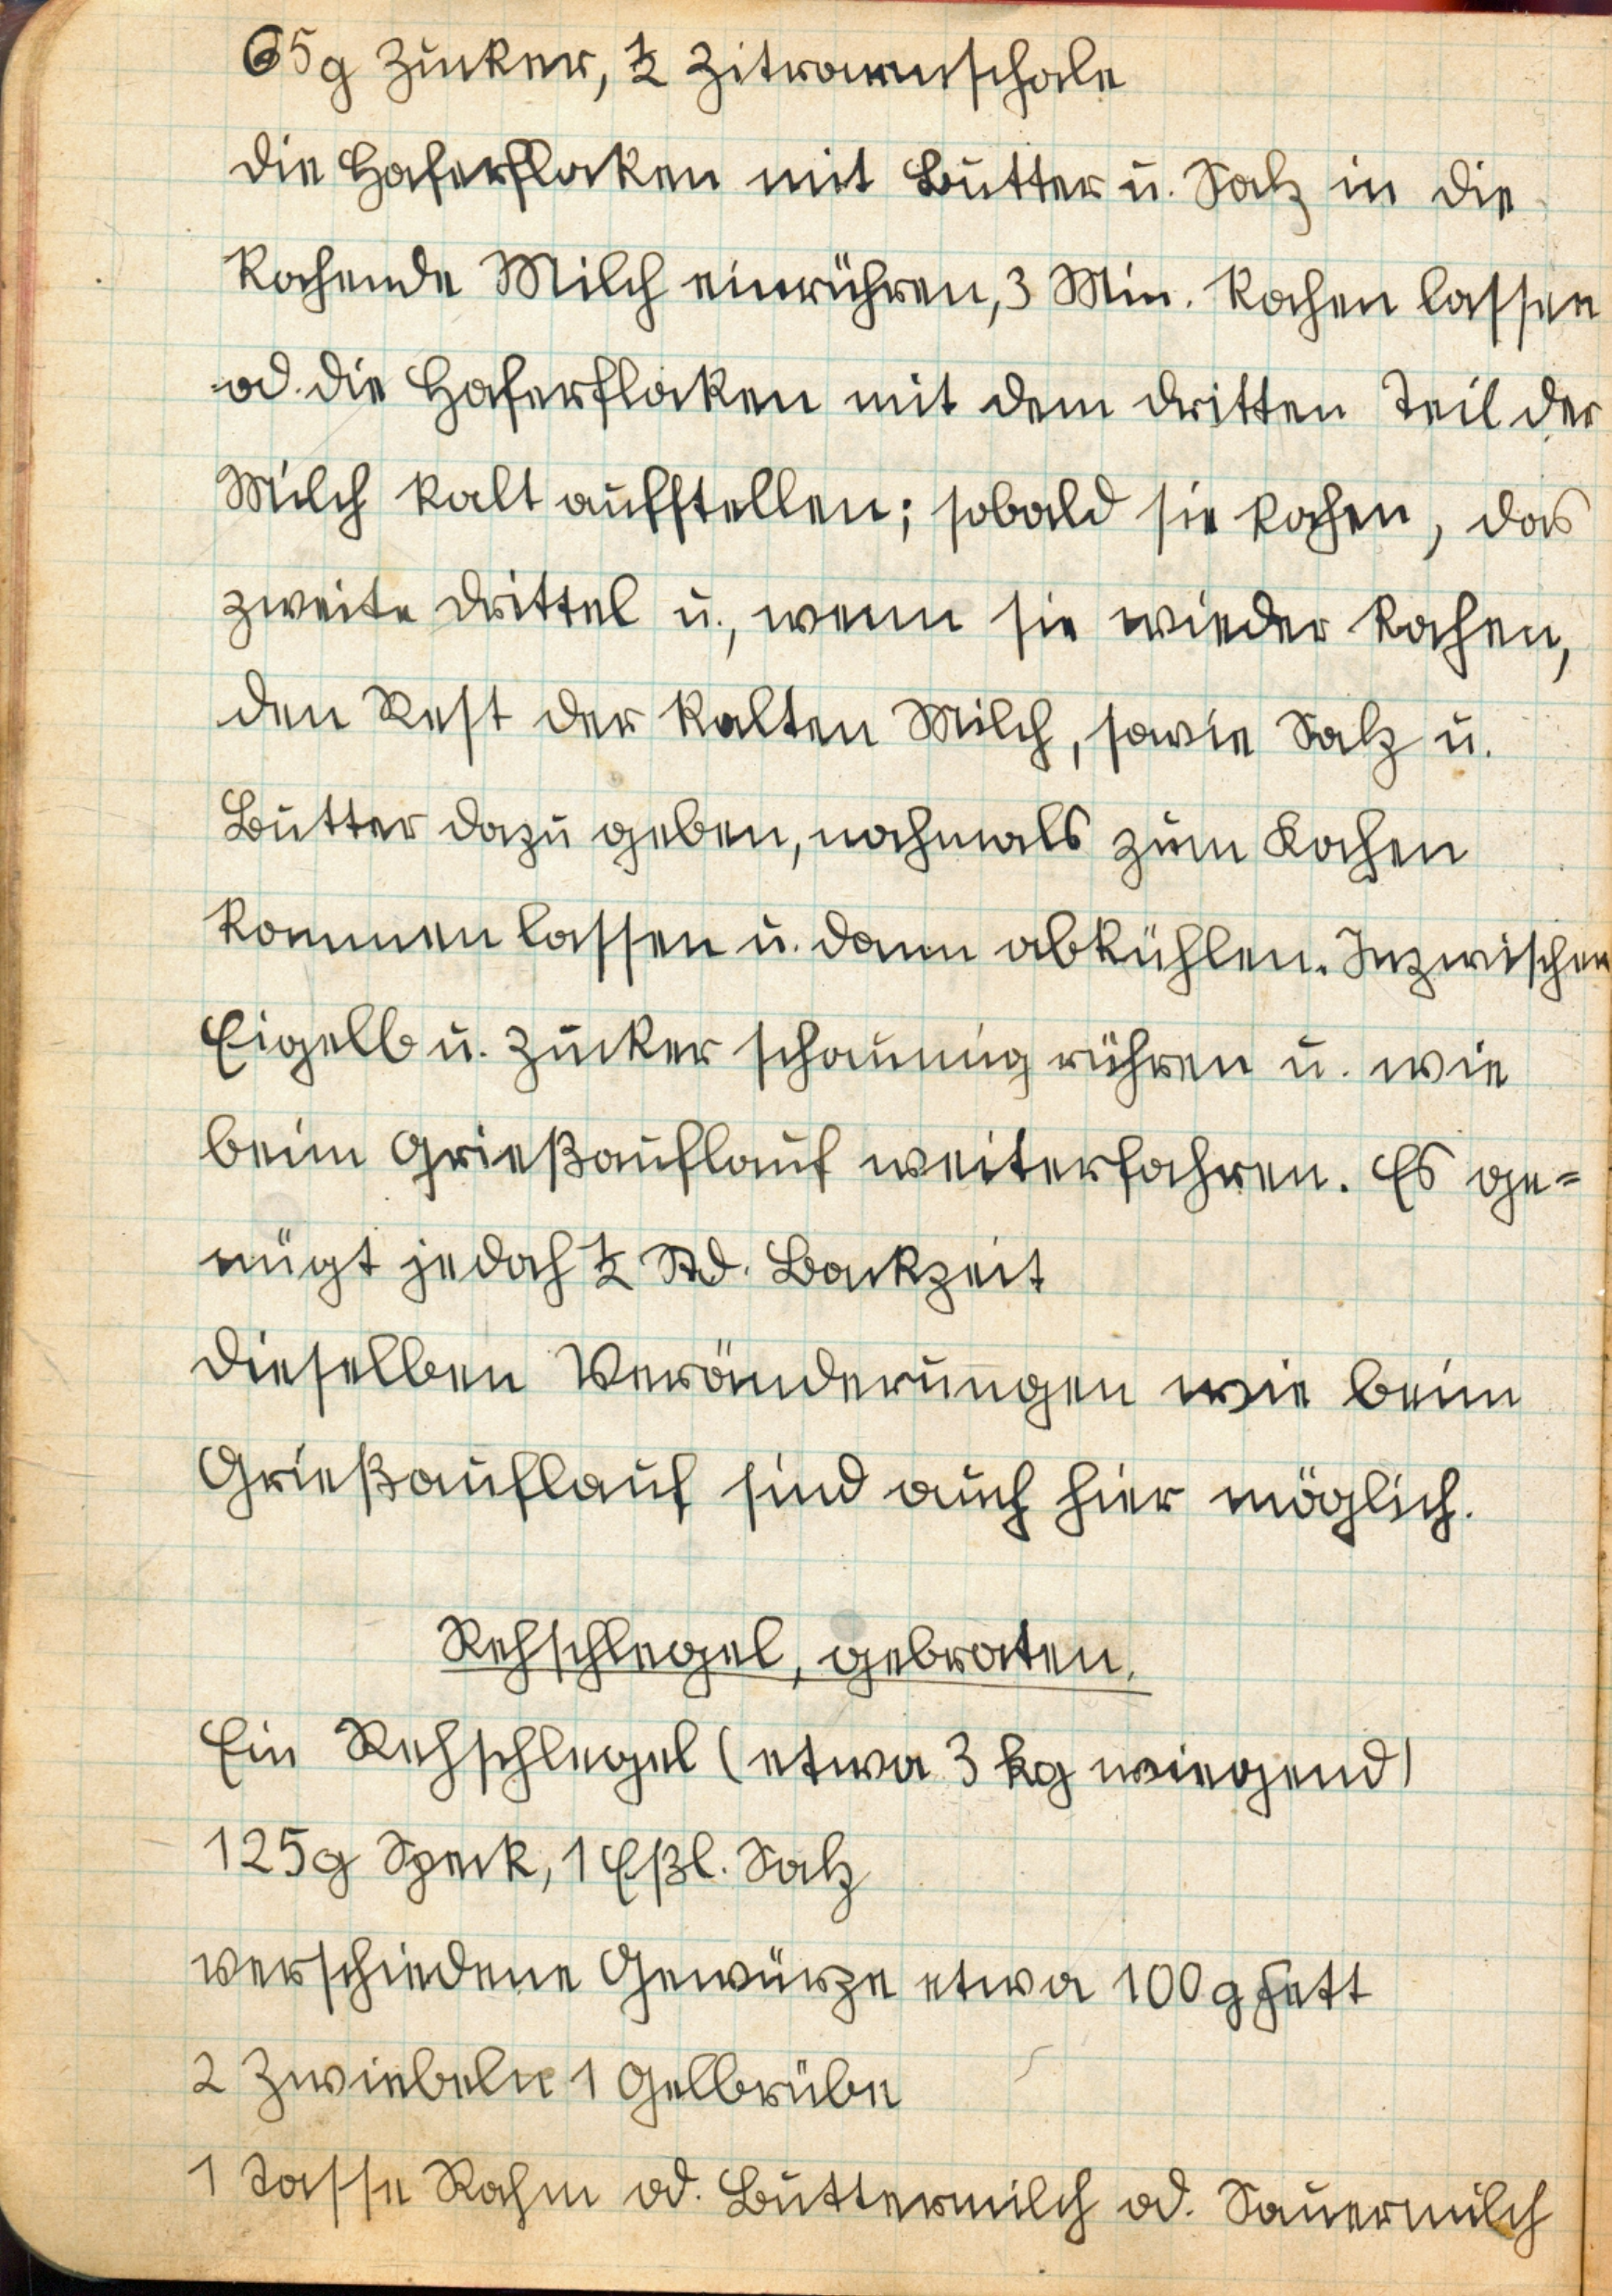 65g Zucker, ½ Zitronenschale
Die Haferflocken mit Butter u. Salz in die
kochende Milch einrühren, 3 Min. kochen lassen
od. die Haferflocken mit dem dritten Teil der
Milch kalt aufstellen; sobald sie kochen, das
zweite Drittel u., wenn sie wieder kochen,
den Rest der kalten Milch, sowie Salz u.
Butter dazu geben, nochmals zum Kochen
kommen lassen u. dann abkühlen. Inzwischen
Eigelb u. Zucker schaumig rühren u. wie
beim Grießauflauf weiterfahren. Es ge=
nügt jedoch ½ Std. Backzeit
Dieselben Veränderungen wie beim
Grießauflauf sind auch hier möglich.
Rehschlegel, gebraten.
Ein Rehschlegel (etwa 3 kg wiegend)
125g Speck, 1 Eßl. Salz
verschiedene Gewürze etwa 100g Fett
2 Zwiebeln 1 Gelbrübe
1 Tasse Rahm od. Buttermilch od. Sauermilch